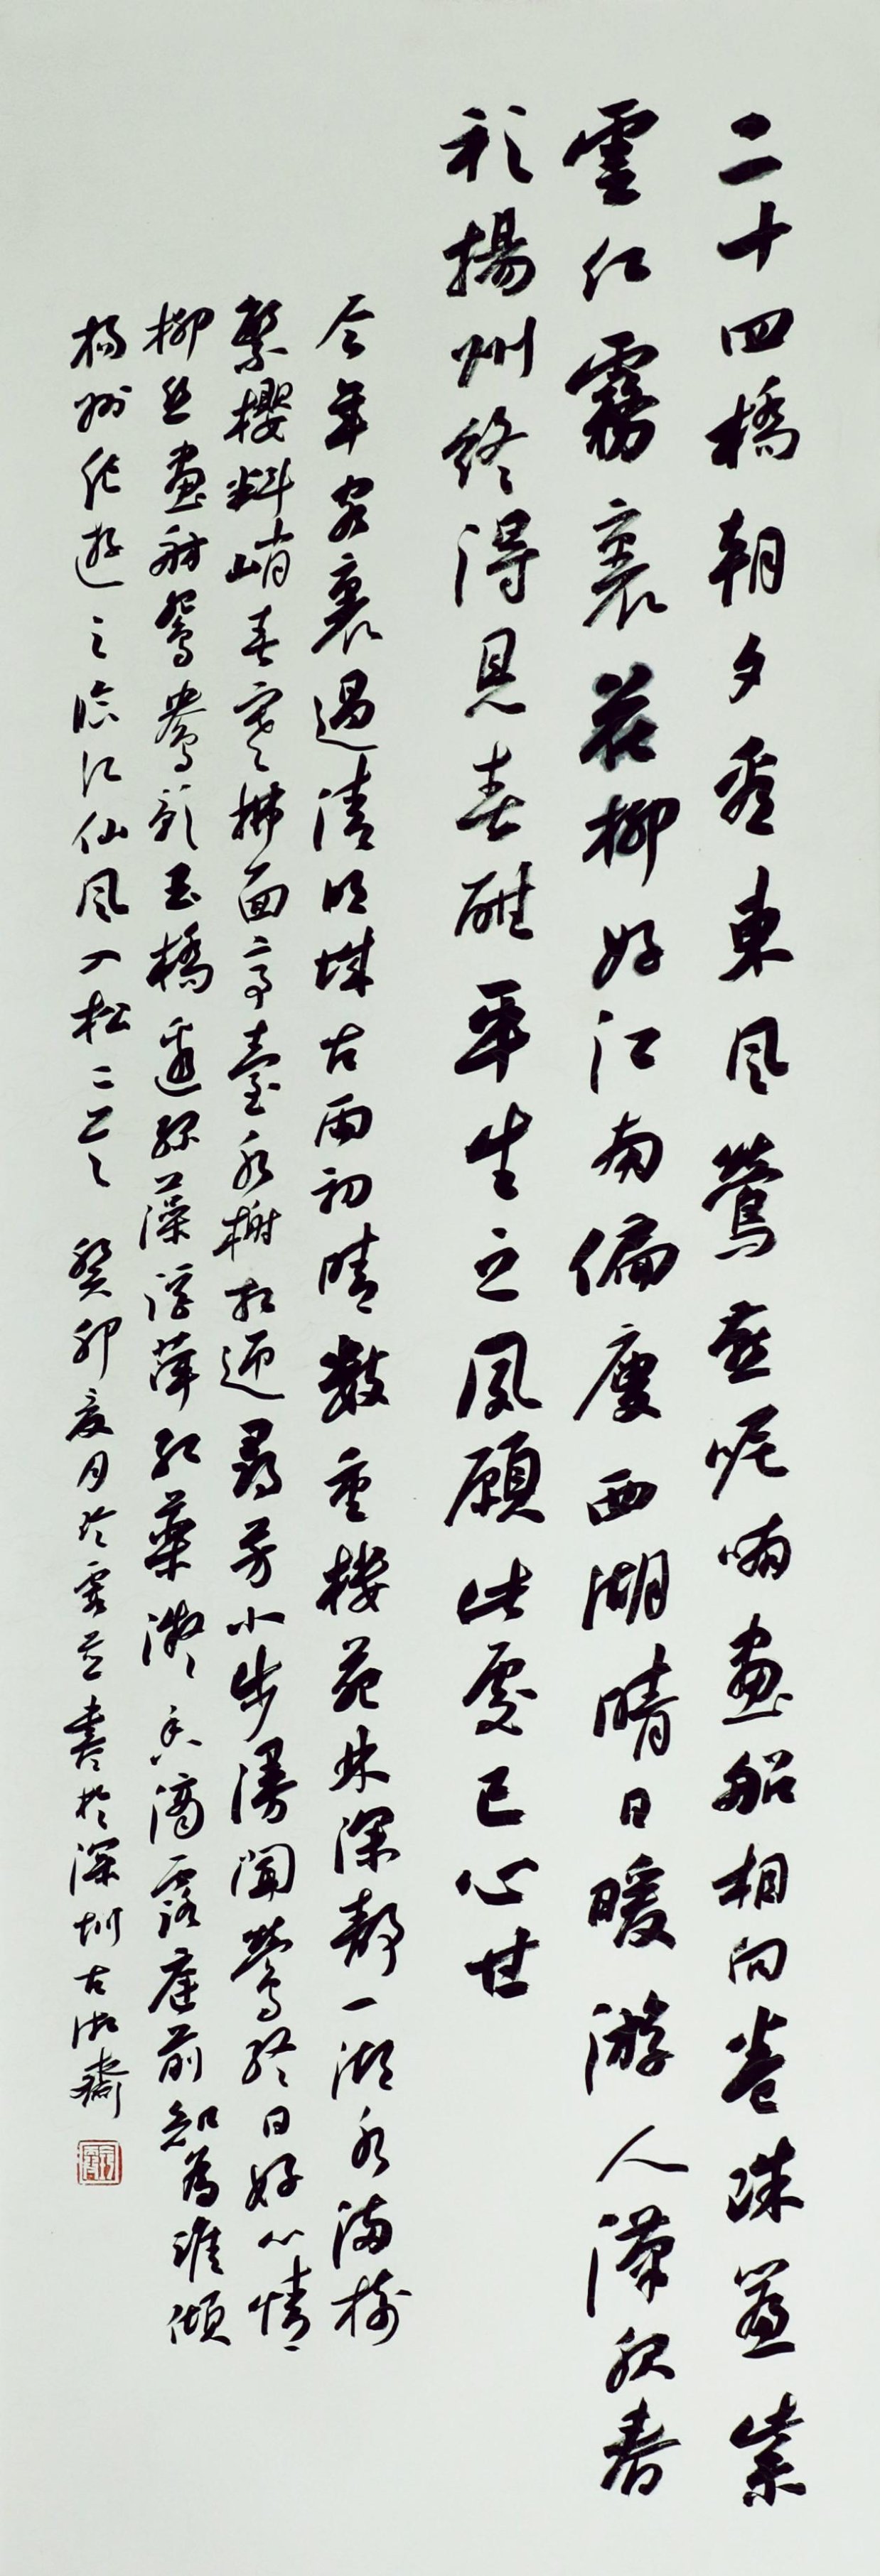 二十四橋朝夕看東風鶯燕呢喃畫船相向卷珠簾紫
雲紅霧裏花柳好江南偏廋西湖晴日暖游人漢服春
衫揚州終得見春酣平生之夙願此處已心甘
今年客裏過清明城古雨初晴數重樓苑林深靜一湖水滿樹
繁櫻料峭春寒拂面亭臺水榭相迎尋芳小步漫聞鶯終日好心情
柳絲畫舫鴛鴦影玉橋邊綠藻浮萍紅藥凝香滴露庭前知為誰傾
揚州紀遊之臨江仙風入松二首 癸卯夏月 書於深圳古 齋